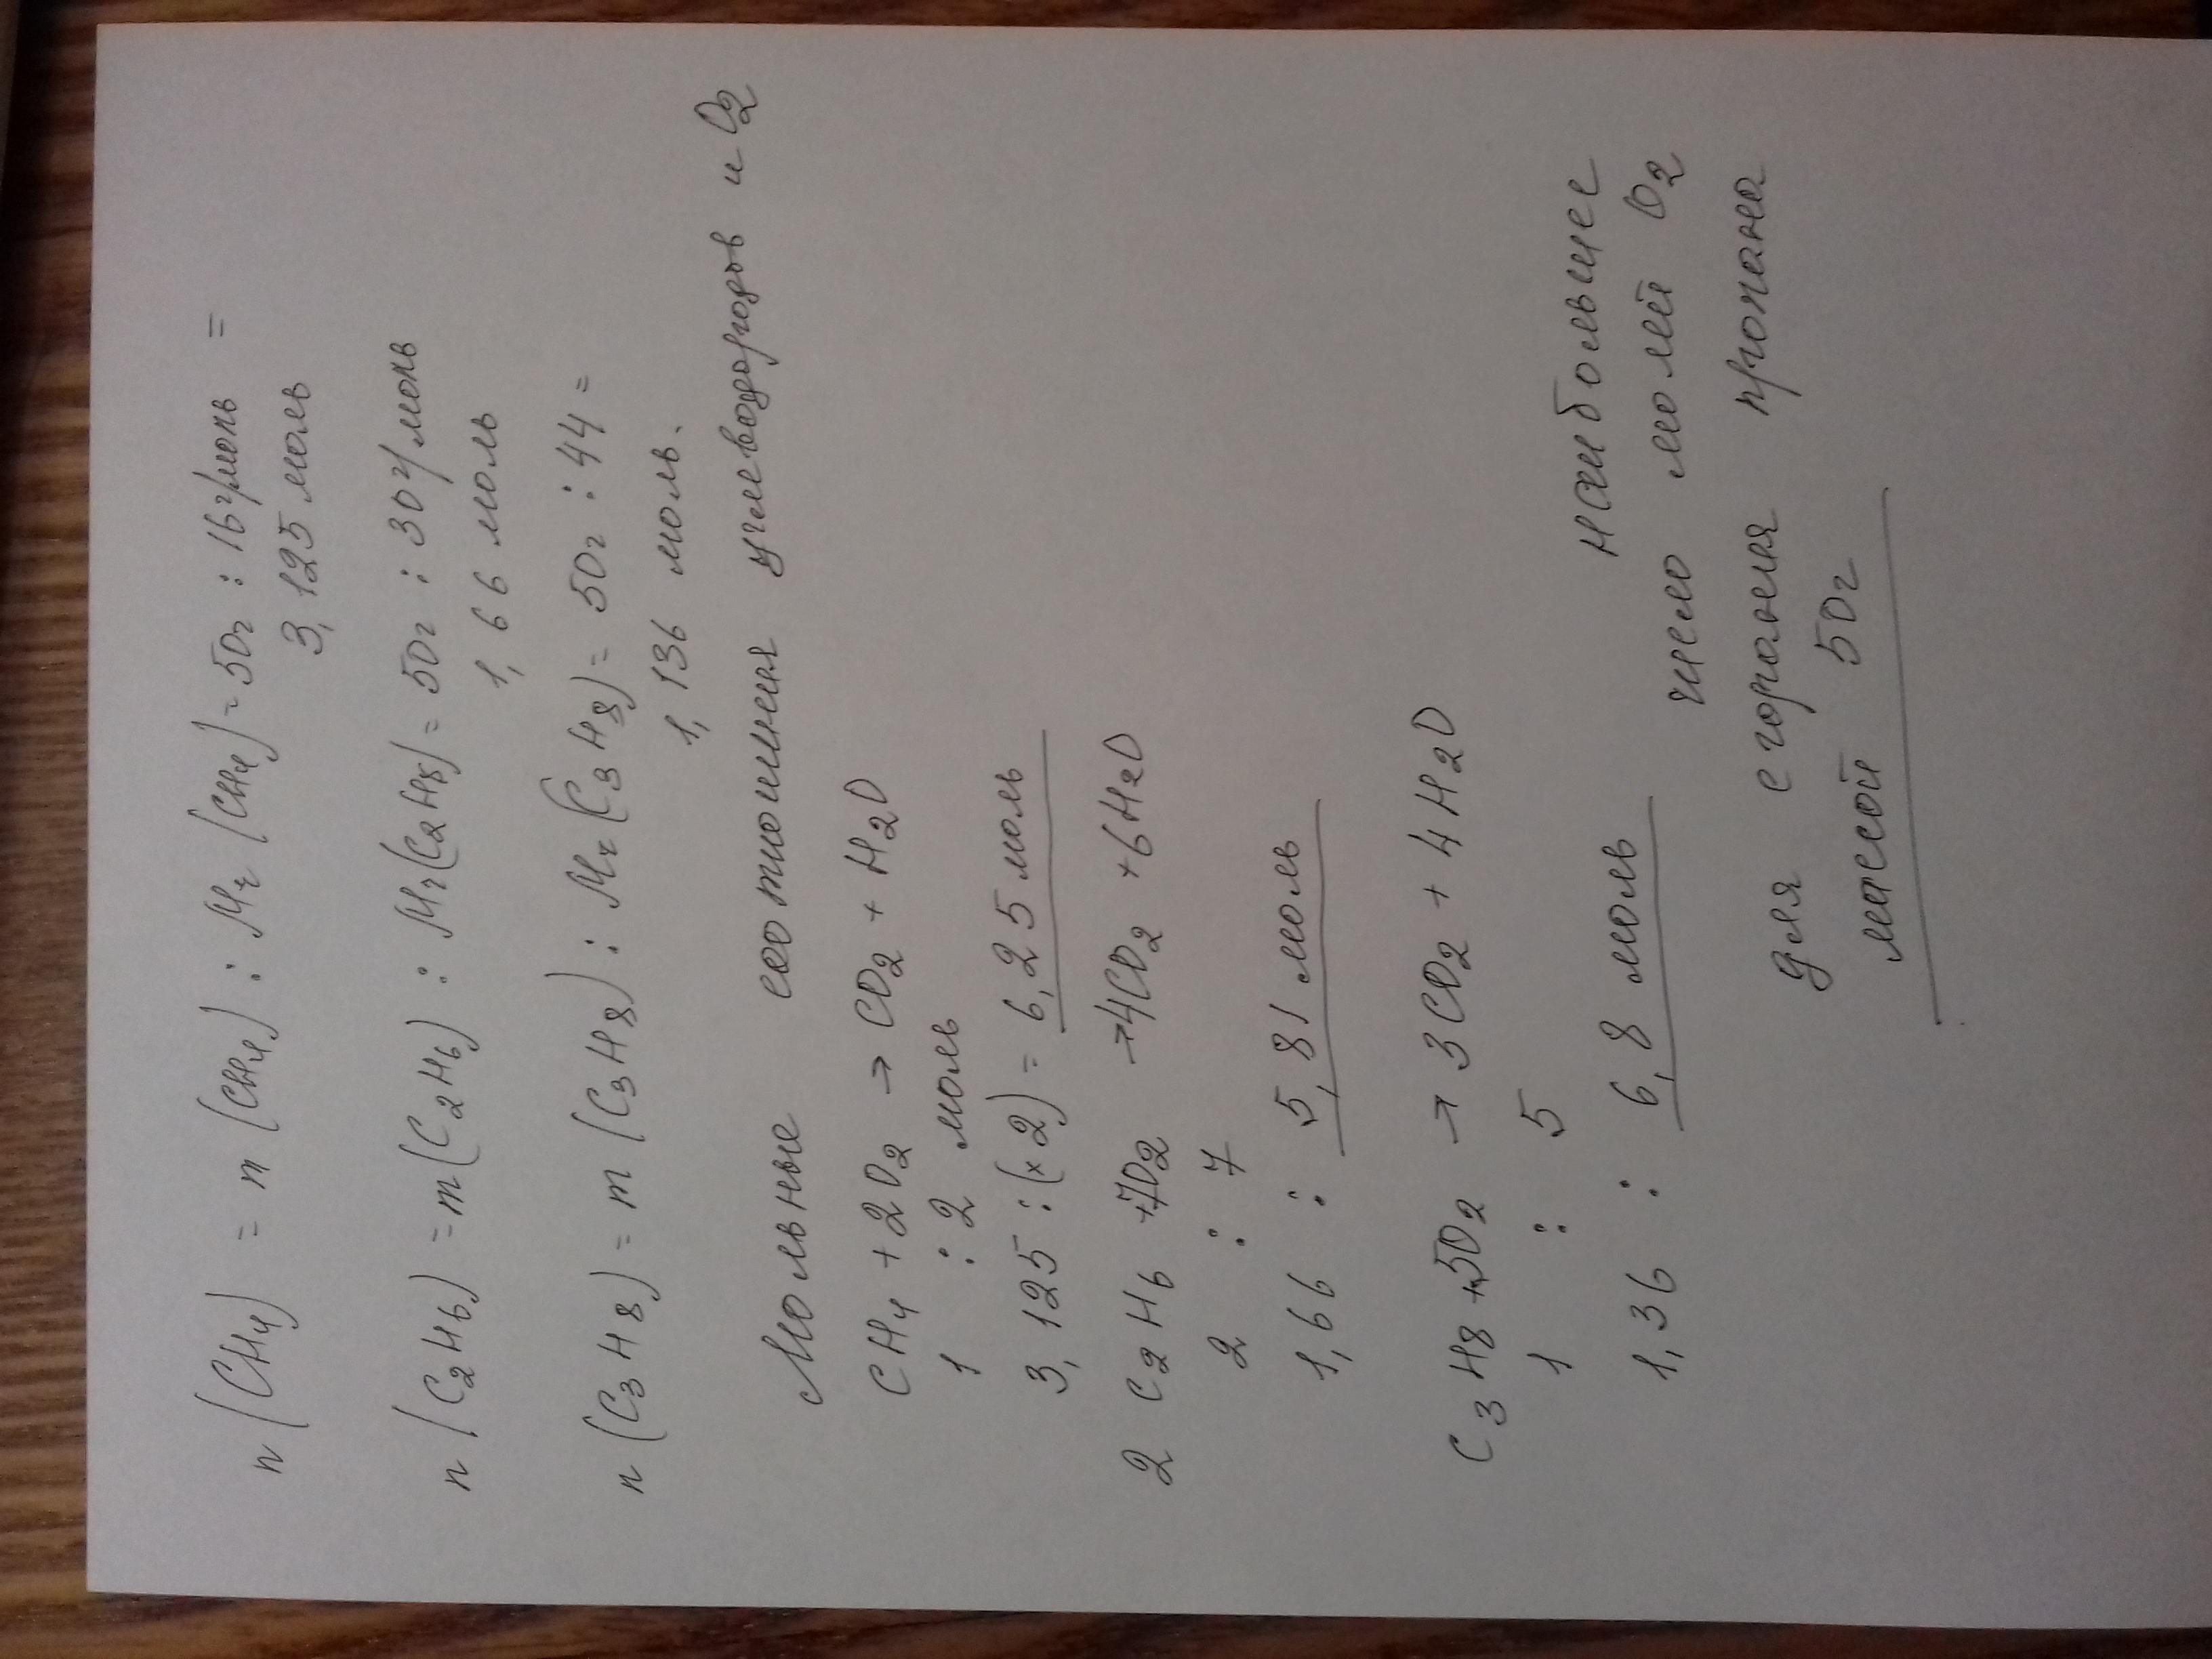 n (CH4) = m (CH4) : Mr (CH4) = 50г : 16г/моль =
3,125 моль
n (C2H6) = m (C2H6) : Mr (C2H6) = 50г : 30г/моль
1,66 моль
n (C3H8) = m (C3H8) : Mr (C3H8) = 50г : 44 =
1,136 моль.
Мольные соотношения углеводородов и O2
CH4 + 2O2 → CO2 + H2O
1 : 2 моль
3,125 : (×2) = 6,25 моль
2 C2H6 +7O2 →4CO2 +6H2O
2 : 7
1,66 : 5,81 моль
C3H8 +5O2 → 3CO2 + 4H2O
1 : 5
1,36 : 6,8 моль
наибольшее
число молей O2
для сгорания пропана
массой 50г